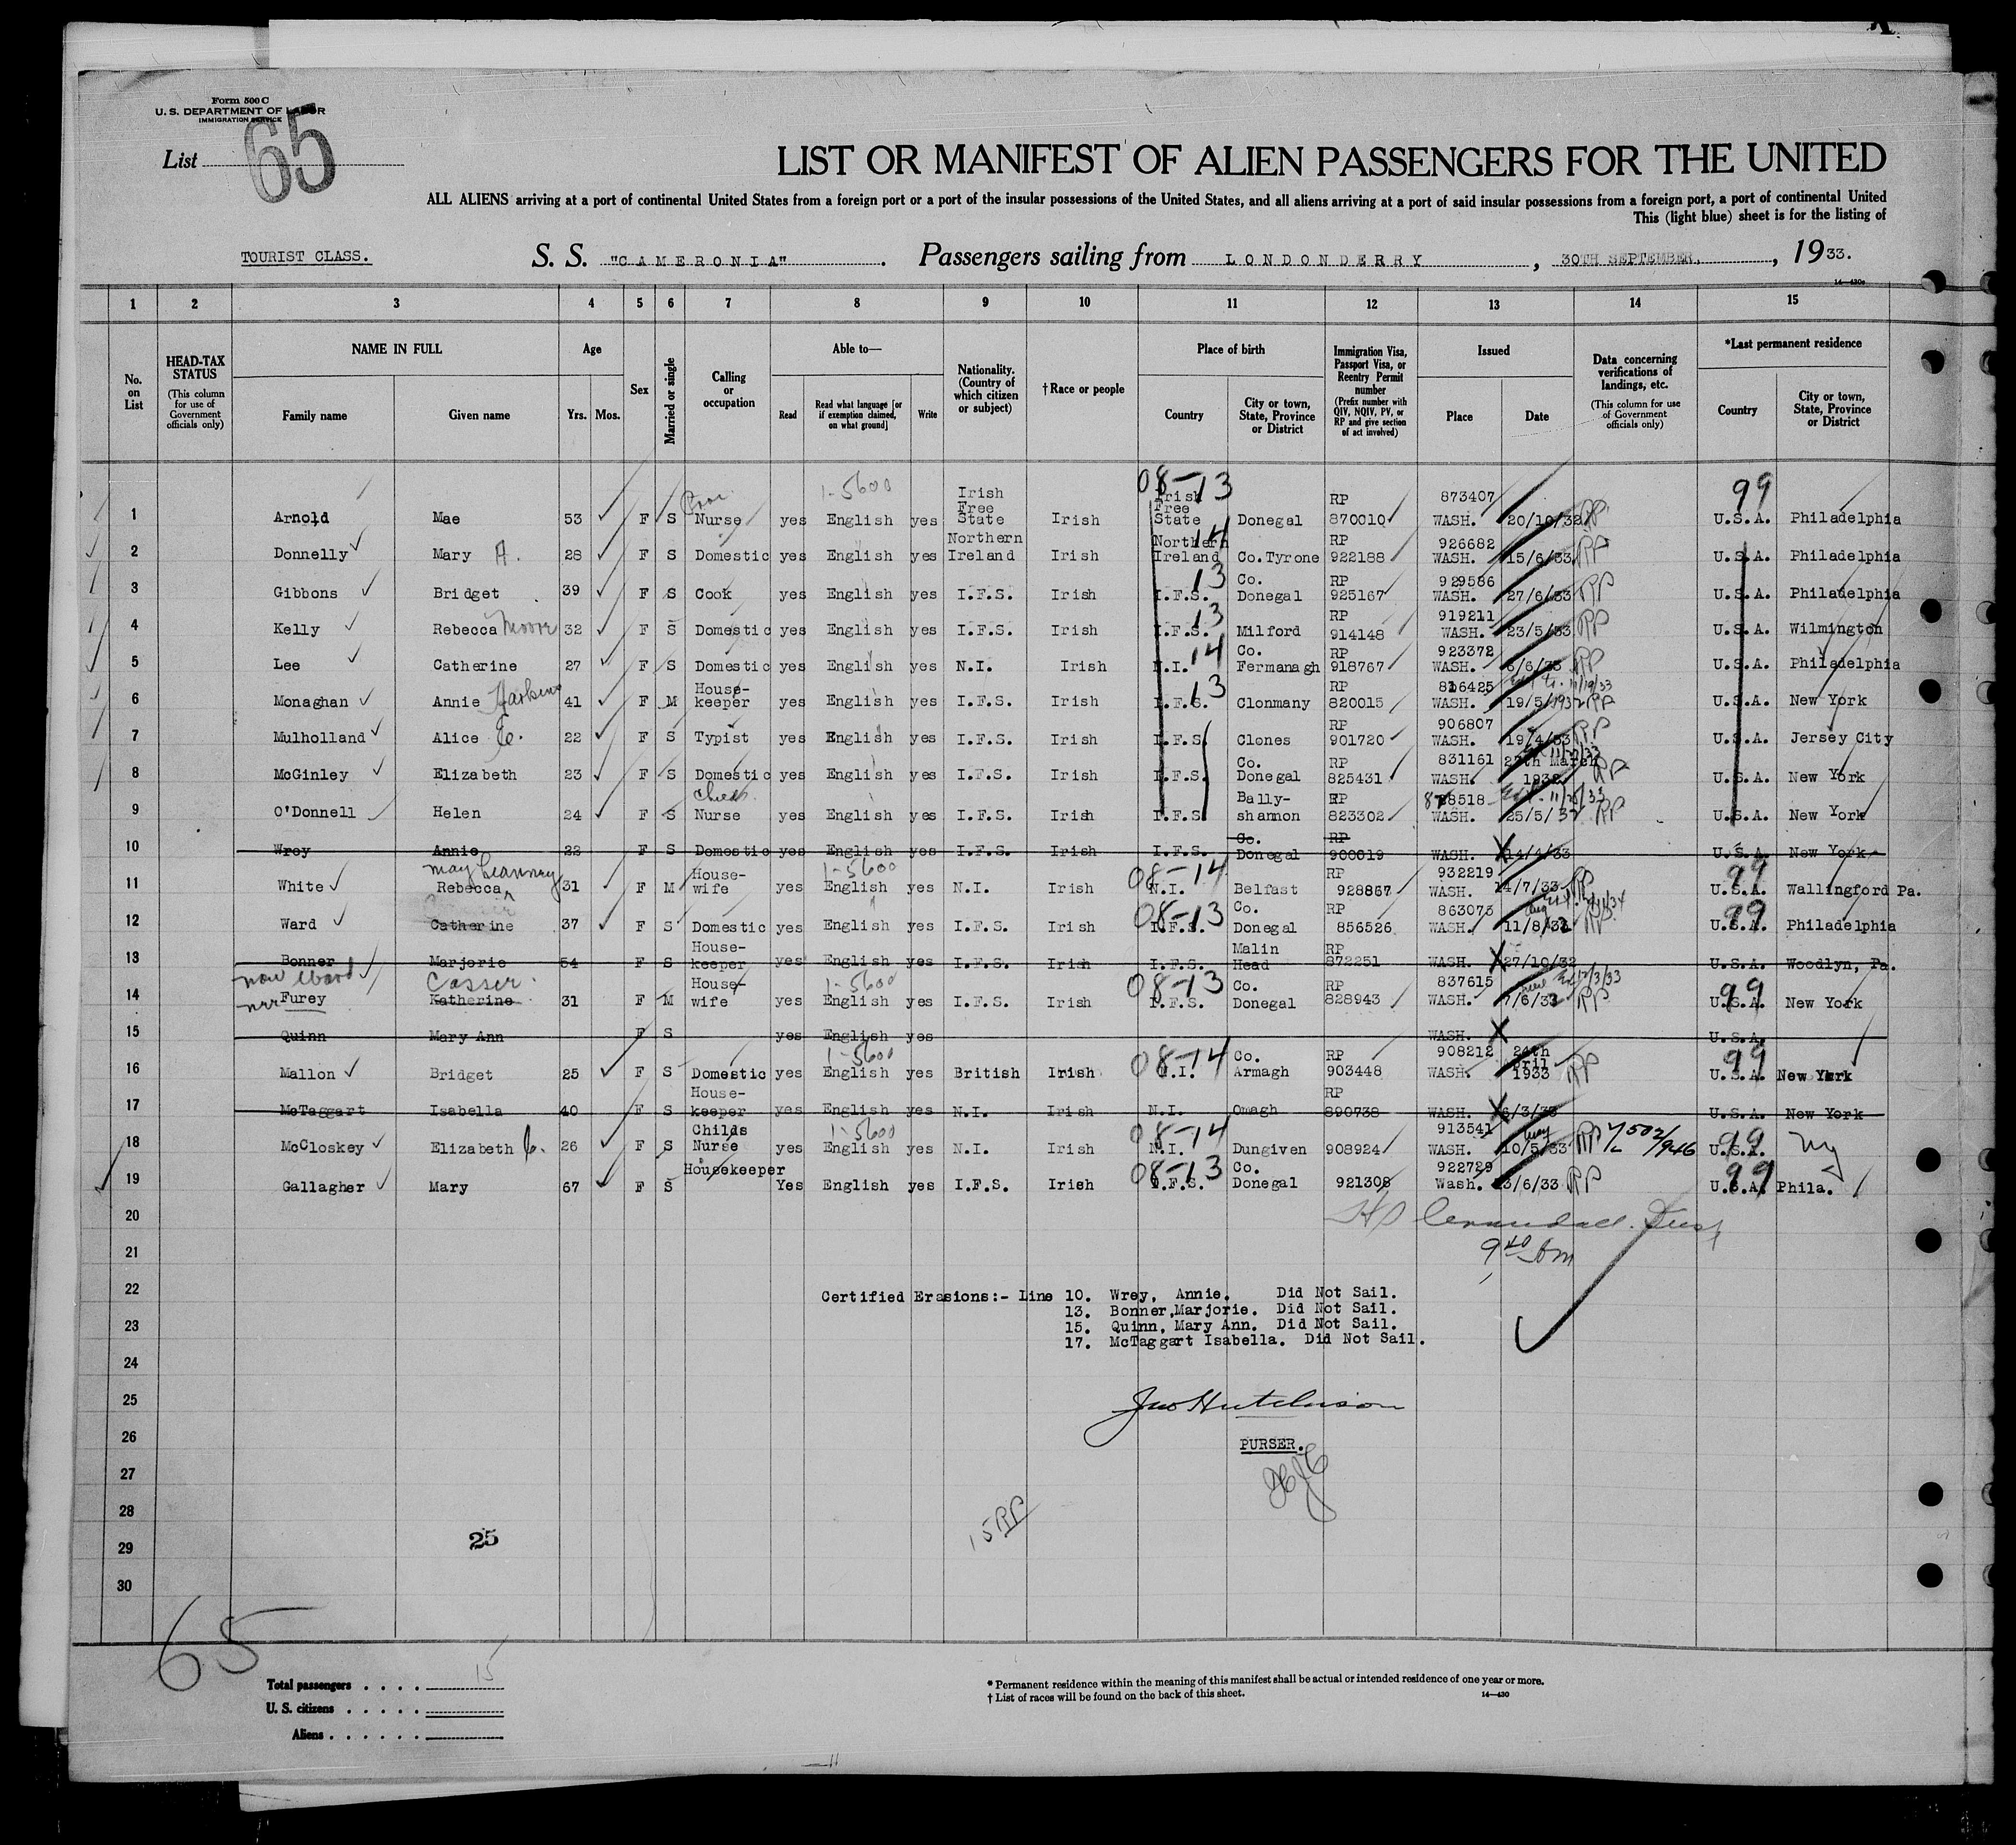 Form 500 C
U. S. DEPARTMENT OF LABOR
IMMIGRATION SERVICE
List 65
LIST OR MANIFEST OF ALIEN PASSENGERS FOR THE UNITED
ALL ALIENS arriving at a port of continental United States from a foreign port or a port of the insular possessions of the United States, and all aliens arriving at a port of said insular possessions from a foreign port, a port of continental United
This (light blue) sheet is for the listing of
TOURIST CLASS. S. S. "CAMERONIA". Passengers sailing from LONDONDERRY, 30TH SEPTEMBER, 1933.
14—430c
1 2 3 4 5 6 7 8 9 10 11 12 13 14 15
No. on List
HEAD-TAX STATUS (This column for use of Government officials only)
NAME IN FULL Family name Given name
Age Yrs. Mos.
Sex
Married or single
Calling or occupation
Able to— Read Read what language [or if exemption claimed, on what ground] Write
Nationality. (Country of which citizen or subject)
†Race or people
Place of birth Country City or town, State, Province or District
Immigration Visa, Passport Visa, or Reentry Permit number (Prefix number with QIV, NQIV, PV, or RP and give section of act involved)
Issued Place Date
Data concerning verifications of landings, etc. (This column for use of Government officials only)
*Last permanent residence Country City or town, State, Province or District
1 Arnold Mae 53 F S Nurse yes 1-5600 English yes Irish Free State Irish 08-13 Irish Free State Donegal RP 870010 873407 WASH. 20/10/32 RP 99 U.S.A. Philadelphia
2 Donnelly Mary A. 28 F S Domestic yes English yes Northern Ireland Irish 14 Northern Ireland Co.Tyrone RP 922188 926682 WASH. 15/6/33 RP U.S.A. Philadelphia
3 Gibbons Bridget 39 F S Cook yes English yes I.F.S. Irish 13 I.F.S. Co. Donegal RP 925167 929586 WASH. 27/6/33 RP U.S.A. Philadelphia
4 Kelly Rebecca Moore 32 F S Domestic yes English yes I.F.S. Irish 13 I.F.S. Milford RP 914148 919211 WASH. 23/5/33 RP U.S.A. Wilmington
5 Lee Catherine 27 F S Domestic yes English yes N.I. Irish 14 N.I. Co. Fermanagh RP 918767 923372 WASH. 6/6/33 RP U.S.A. Philadelphia
6 Monaghan Annie Harkins 41 F M House-keeper yes English yes I.F.S. Irish 13 I.F.S. Clonmany RP 820015 816425 WASH. 19/5/1932 11/19/33 RP U.S.A. New York
7 Mulholland Alice E. 22 F S Typist yes English yes I.F.S. Irish I.F.S. Clones RP 901720 906807 WASH. 19/4/33 RP U.S.A. Jersey City
8 McGinley Elizabeth 23 F S Domestic yes English yes I.F.S. Irish I.F.S. Co. Donegal RP 825431 831161 WASH. 27th March 1932 RP U.S.A. New York
9 O'Donnell Helen 24 F S Childs Nurse yes English yes I.F.S. Irish I.F.S. Bally-shannon RP 823302 828518 WASH. 25/5/32 RP U.S.A. New York
10 Wrey Annie 22 F S Domestic yes English yes I.F.S. Irish I.F.S. Co. Donegal RP 900619 WASH. X 14/4/33 U.S.A. New York
11 White May Leanney Rebecca 31 F M House-wife yes 1-5600 English yes N.I. Irish 08-14 N.I. Belfast RP 928867 932219 WASH. 14/7/33 RP 99 U.S.A. Wallingford Pa.
12 Ward Catherine 37 F S Domestic yes English yes I.F.S. Irish 08-13 I.F.S. Co. Donegal RP 856526 863075 WASH. 11/8/32 RP 99 U.S.A. Philadelphia
13 Bonner Marjorie 54 F S House-keeper yes English yes I.F.S. Irish I.F.S. Malin Head RP 872251 WASH. X 27/10/32 U.S.A. Woodlyn, Pa.
14 now Ward nee Furey Casser Katherine 31 F M House-wife yes 1-5600 English yes I.F.S. Irish 08-13 I.F.S. Co. Donegal RP 828943 837615 WASH. 7/6/32 12/3/33 RP 99 U.S.A. New York
15 Quinn Mary Ann F S yes English yes WASH. X U.S.A.
16 Mallon Bridget 25 F S Domestic yes 1-5600 English yes British Irish 08-14 N.I. Co. Armagh RP 903448 908212 WASH. 24th April 1933 RP 99 U.S.A. New York
17 McTaggart Isabella 40 F S House-keeper yes English yes N.I. Irish N.I. Omagh RP 890738 WASH. X 6/3/33 U.S.A. New York
18 McCloskey Elizabeth C. 26 F S Childs Nurse yes 1-5600 English yes N.I. Irish 08-14 N.I. Dungiven 908924 913541 WASH. May 10/5/33 RP 99 U.S.A. NY
19 Gallagher Mary 67 F S Housekeeper Yes English yes I.F.S. Irish 08-13 I.F.S. Co. Donegal 921308 922729 Wash. 3/6/33 RP 99 U.S.A. Phila.
20
21 9 40 Am
22 Certified Erasions:- Line 10. Wrey, Annie. Did Not Sail.
13. Bonner,Marjorie. Did Not Sail.
23 15. Quinn, Mary Ann. Did Not Sail.
17. McTaggart Isabella. Did Not Sail.
24
25 Jno Hutchison
26 PURSER.
27
28 15 RP
29 25
30
65
Total passengers 15
U. S. citizens
Aliens
* Permanent residence within the meaning of this manifest shall be actual or intended residence of one year or more.
† List of races will be found on the back of this sheet. 14—430